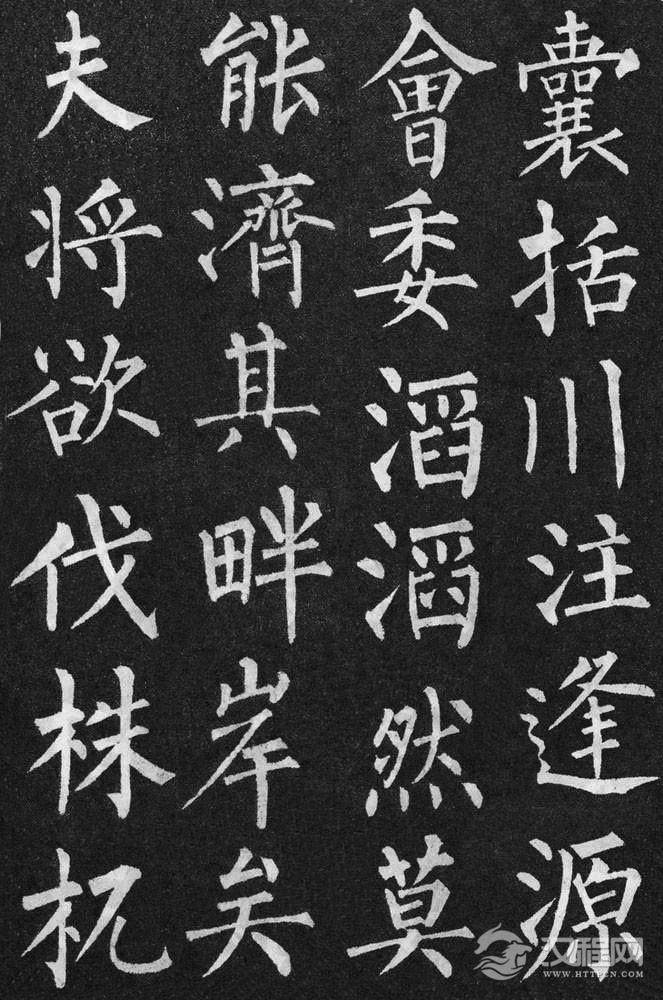 囊括川注逢源
會委滔滔然莫
能濟其畔岸矣
夫将欲伐株杌
汉程网
WWW.HTTPCN.COM